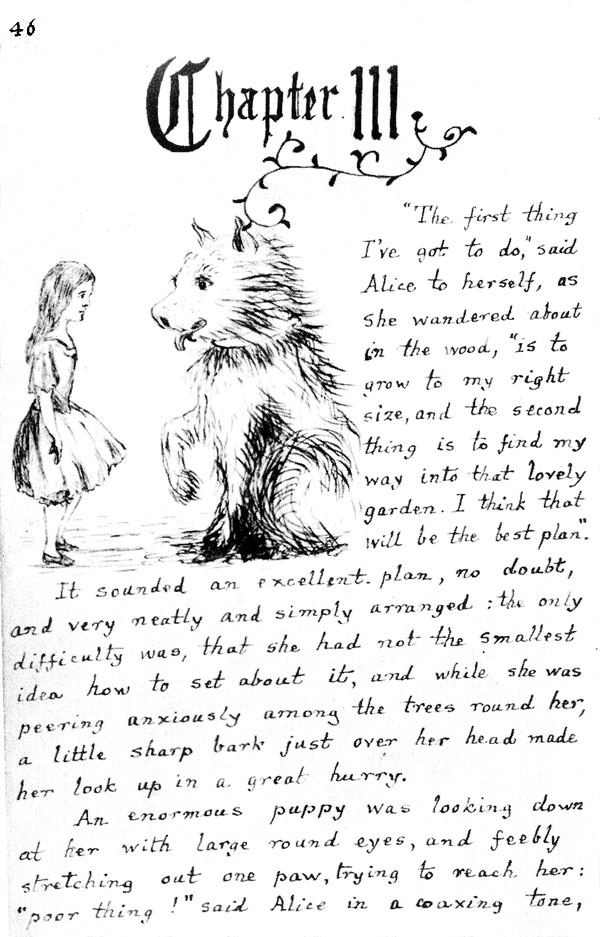 46
Chapter III
"The first thing
I've got to do," said
Alice to herself, as
she wandered about
in the wood, "is to
grow to my right
size, and the second
thing is to find my
way into that lovely
garden. I think that
will be the best plan".
It sounded an excellent plan, no doubt,
and very neatly and simply arranged : the only
difficulty was, that she had not the smallest
idea how to set about it, and while she was
peering anxiously among the trees round her,
a little sharp bark just over her head made
her look up in a great hurry.
An enormous puppy was looking down
at her with large round eyes, and feebly
stretching out one paw, trying to reach her :
"poor thing !" said Alice in a coaxing tone,